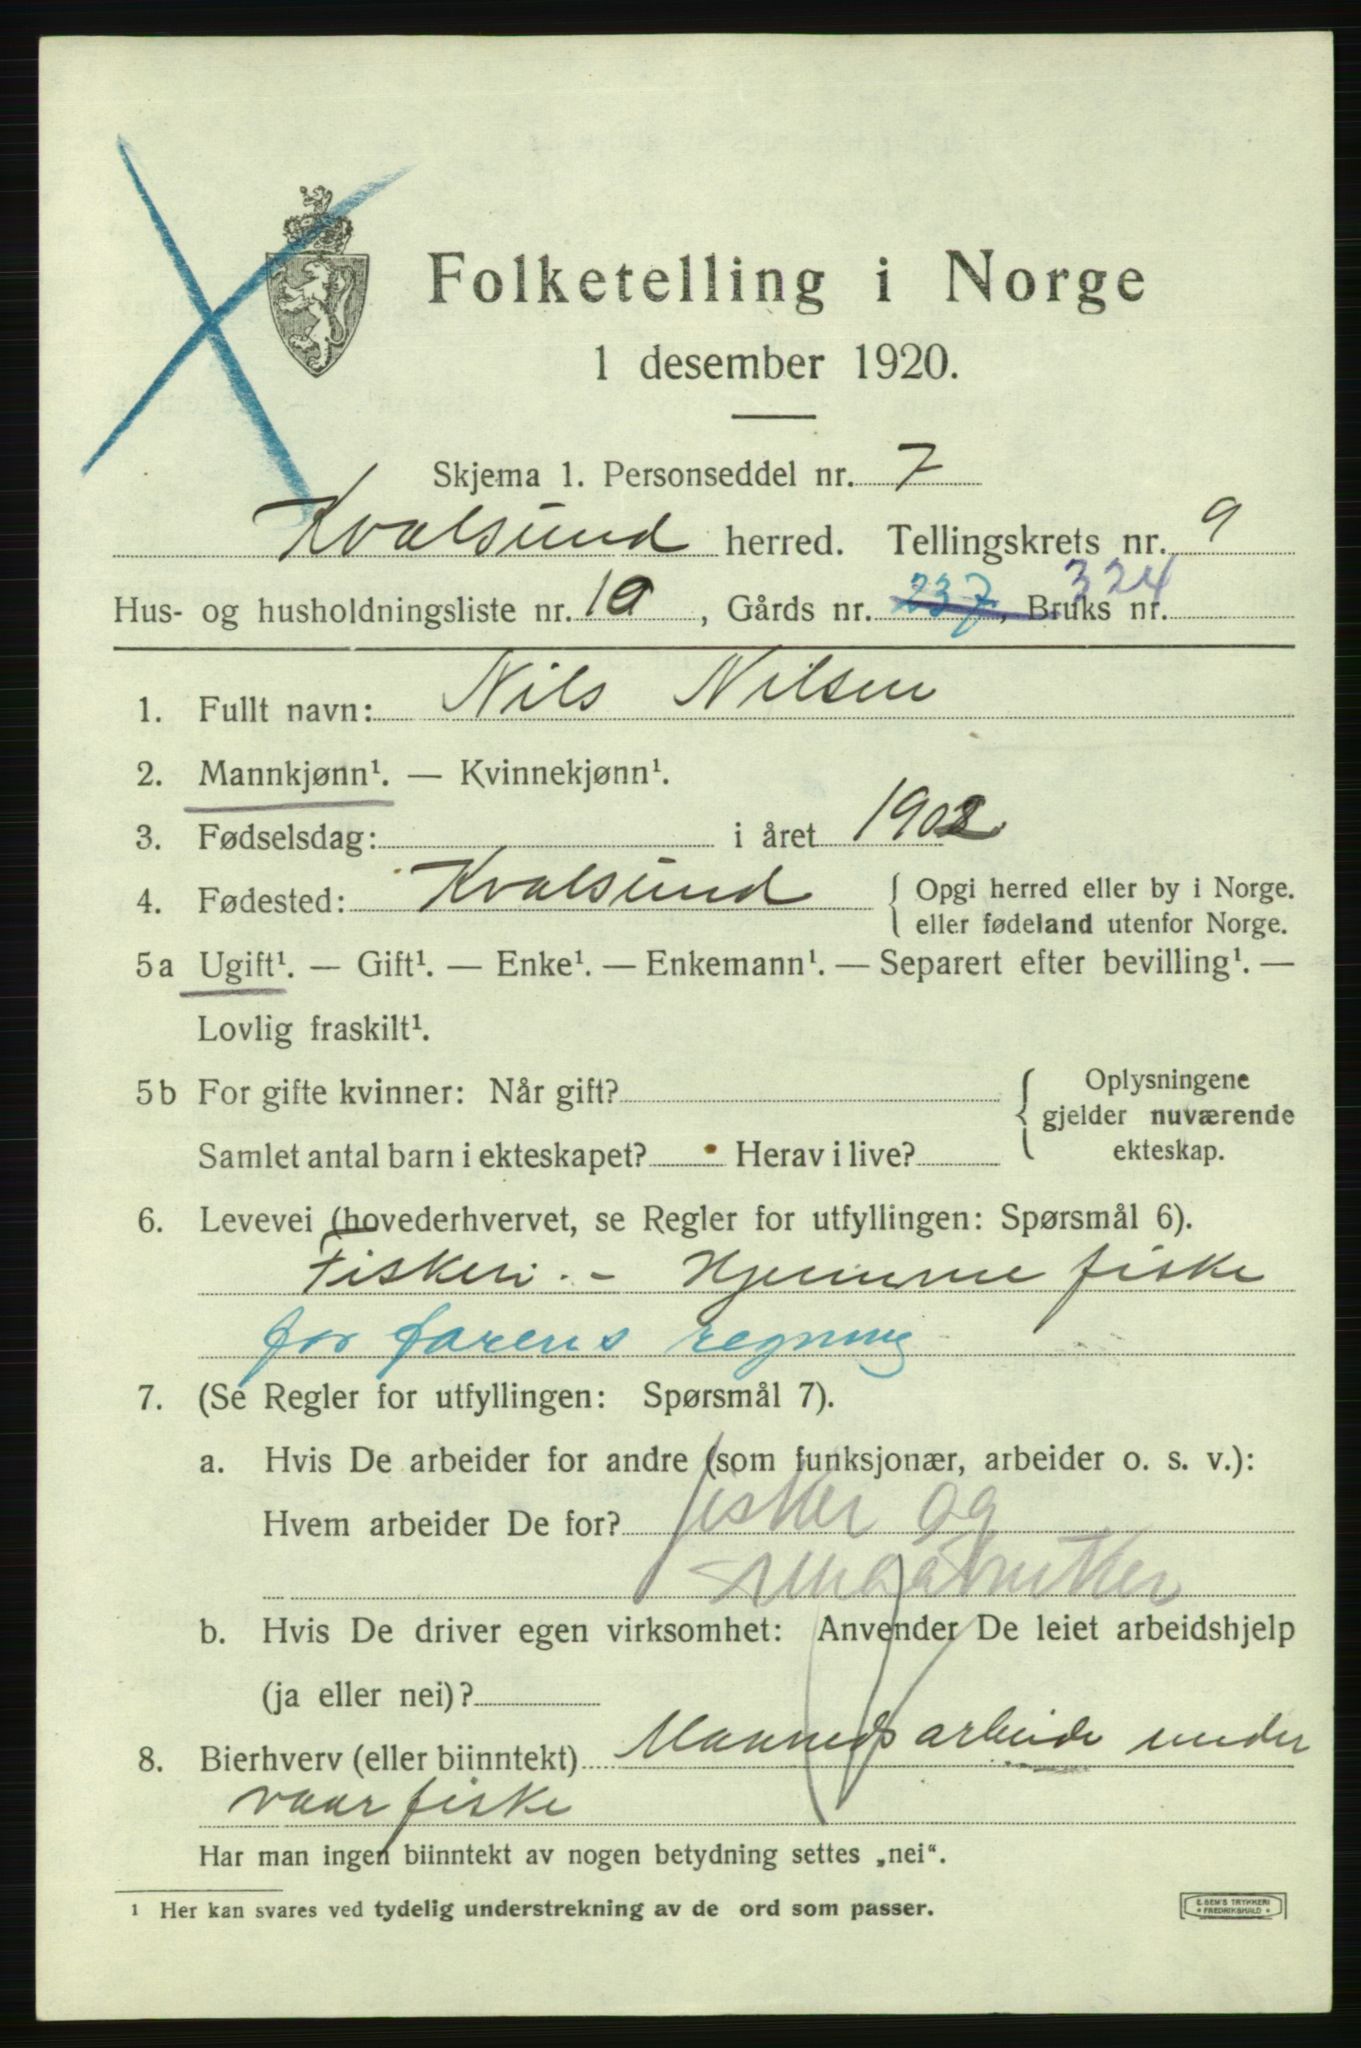 Folketelling i Norge
1 desember 1920.
Skjema 1. Personseddel nr. 7
Kvalsund herred. Tellingskrets nr. 9
324
Hus- og husholdningsliste nr. 10, Gårds nr. 237, Bruks nr.
1. Fullt navn: Nils Nilsen
2. Mannkjønn¹. — Kvinnekjønn¹.
3. Fødselsdag: i året 1902
4. Fødested: Kvalsund { Opgi herred eller by i Norge.
eller fødeland utenfor Norge.
5a Ugift¹. — Gift¹. — Enke¹. — Enkemann¹. — Separert efter bevilling¹. —
Lovlig fraskilt¹.
5b For gifte kvinner: Når gift? { Oplysningene
gjelder nuværende
Samlet antal barn i ekteskapet? Herav i live? ekteskap.
6. Levevei (hovederhvervet, se Regler for utfyllingen: Spørsmål 6).
Fiskeri. - Hjemme fiske
for farens regning
7. (Se Regler for utfyllingen: Spørsmål 7).
a. Hvis De arbeider for andre (som funksjonær, arbeider o. s. v.):
Hvem arbeider De for? fisker og
smaabruker
b. Hvis De driver egen virksomhet: Anvender De leiet arbeidshjelp
(ja eller nei)?
8. Bierhverv (eller biinntekt) arbeide under
vaarfiske
Har man ingen biinntekt av nogen betydning settes „nei“.
¹ Her kan svares ved tydelig understrekning av de ord som passer.
E. SEM'S TRYKKERI
* FREDRIKSHALD *